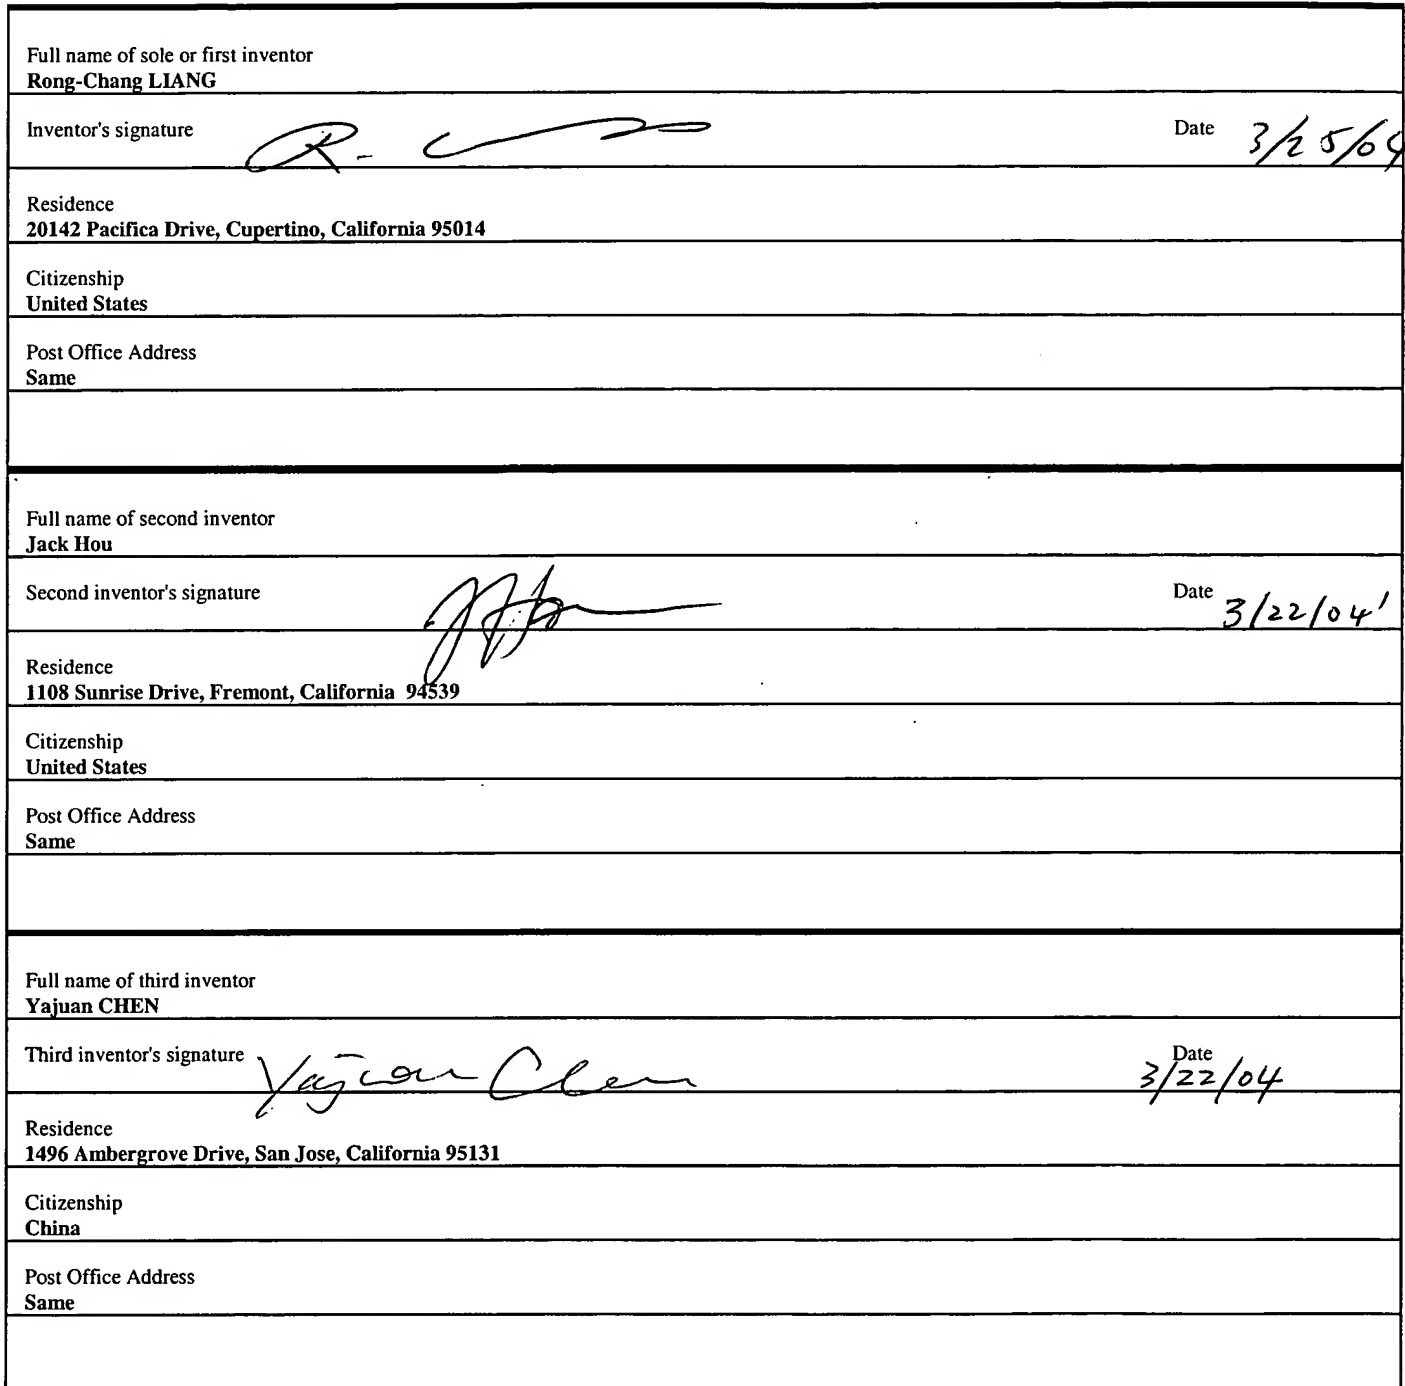 Full name of sole or first inventor
Rong-Chang LIANG
Inventor's signature
Date 3/25/04
Residence
20142 Pacifica Drive, Cupertino, California 95014
Citizenship
United States
Post Office Address
Same
Full name of second inventor
Jack Hou
Second inventor's signature
Date 3/22/04
Residence
1108 Sunrise Drive, Fremont, California 94539
Citizenship
United States
Post Office Address
Same
Full name of third inventor
Yajuan CHEN
Third inventor's signature Yajuan Chen
Date 3/22/04
Residence
1496 Ambergrove Drive, San Jose, California 95131
Citizenship
China
Post Office Address
Same